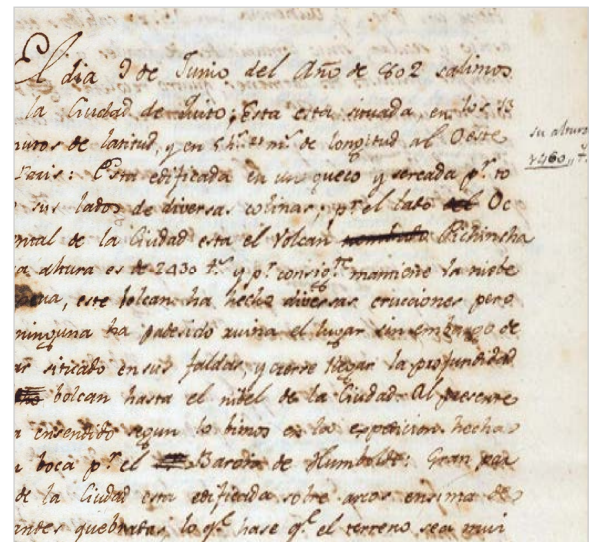 El dia 9 de Junio del Año de 802 salimos
la Ciudad de Quito; Esta esta situada, en los 13
nutos de latitud, y en 5 h.s 21 m.s de longitud al Oeste
Paris: Esta edificada en un queco y sercada p.r to
sus lados de diversas colinas; p.r el lado del Oc
ental de la Ciudad esta el Volcan nombrado Pichinsha
a altura es de 2430 t.s y p.r consig.te mantiene la niebe
petua, este bolcan ha hecho diversas erucciones pero
ninguna ha padesido ruina el lugar sin embargo de
ar situado en sus faldas, y cierre llegar la profundidad
bolcan hasta el nibel de la Ciudad. Al presente
a ensendido segun lo bimos en la espedicion hecha
boca p.r el Baron de Humboldt: Gran par
de la Ciudad esta edificada sobre arcos ensima de
andes quebratas, lo q.e hase q.e el terreno sea mui
su altura
1460,, t.